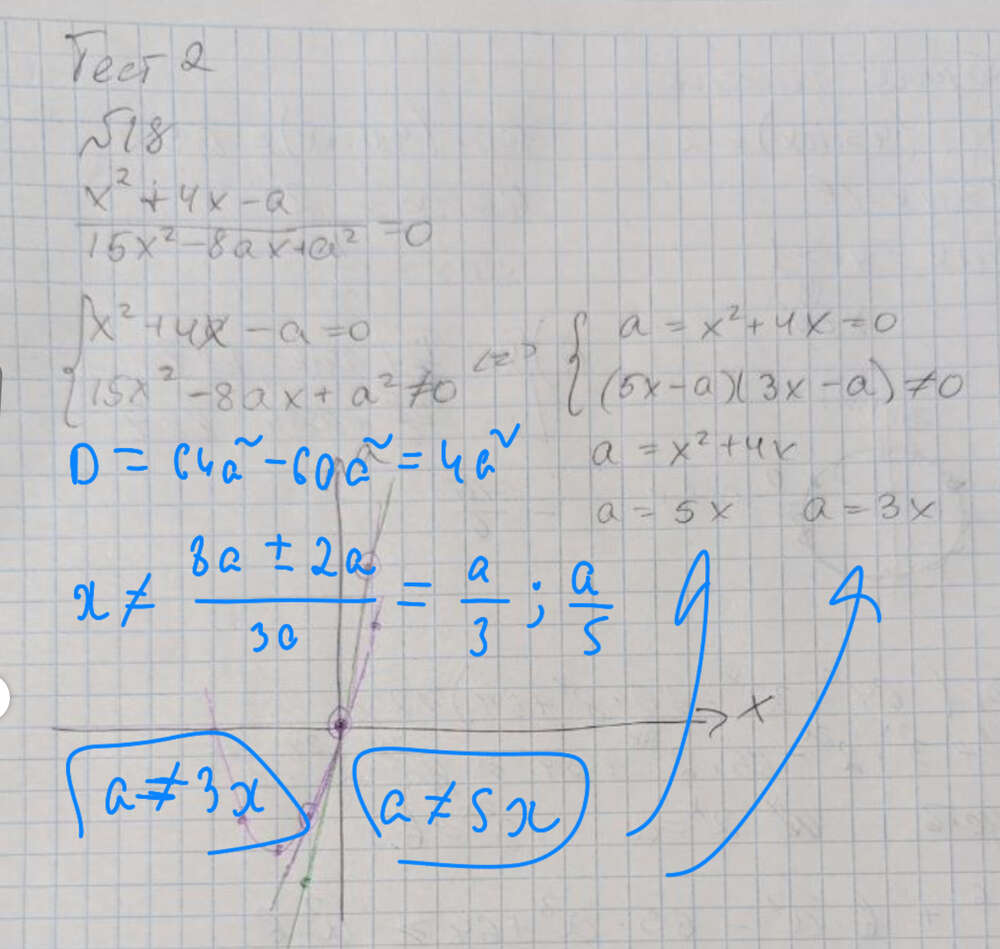 Тест 2
№18
x² + 4x - a / 15x² - 8ax + a² = 0
{ x² + 4x - a = 0 <=> { a = x² + 4x = 0
15x² - 8ax + a² ≠ 0 (5x - a)(3x - a) ≠ 0
D = 64a² - 60a² = 4a² a = x² + 4x
a = 5x a = 3x
x ≠ 8a ± 2a / 30 = a/3 ; a/5
x
a ≠ 3x a ≠ 5x